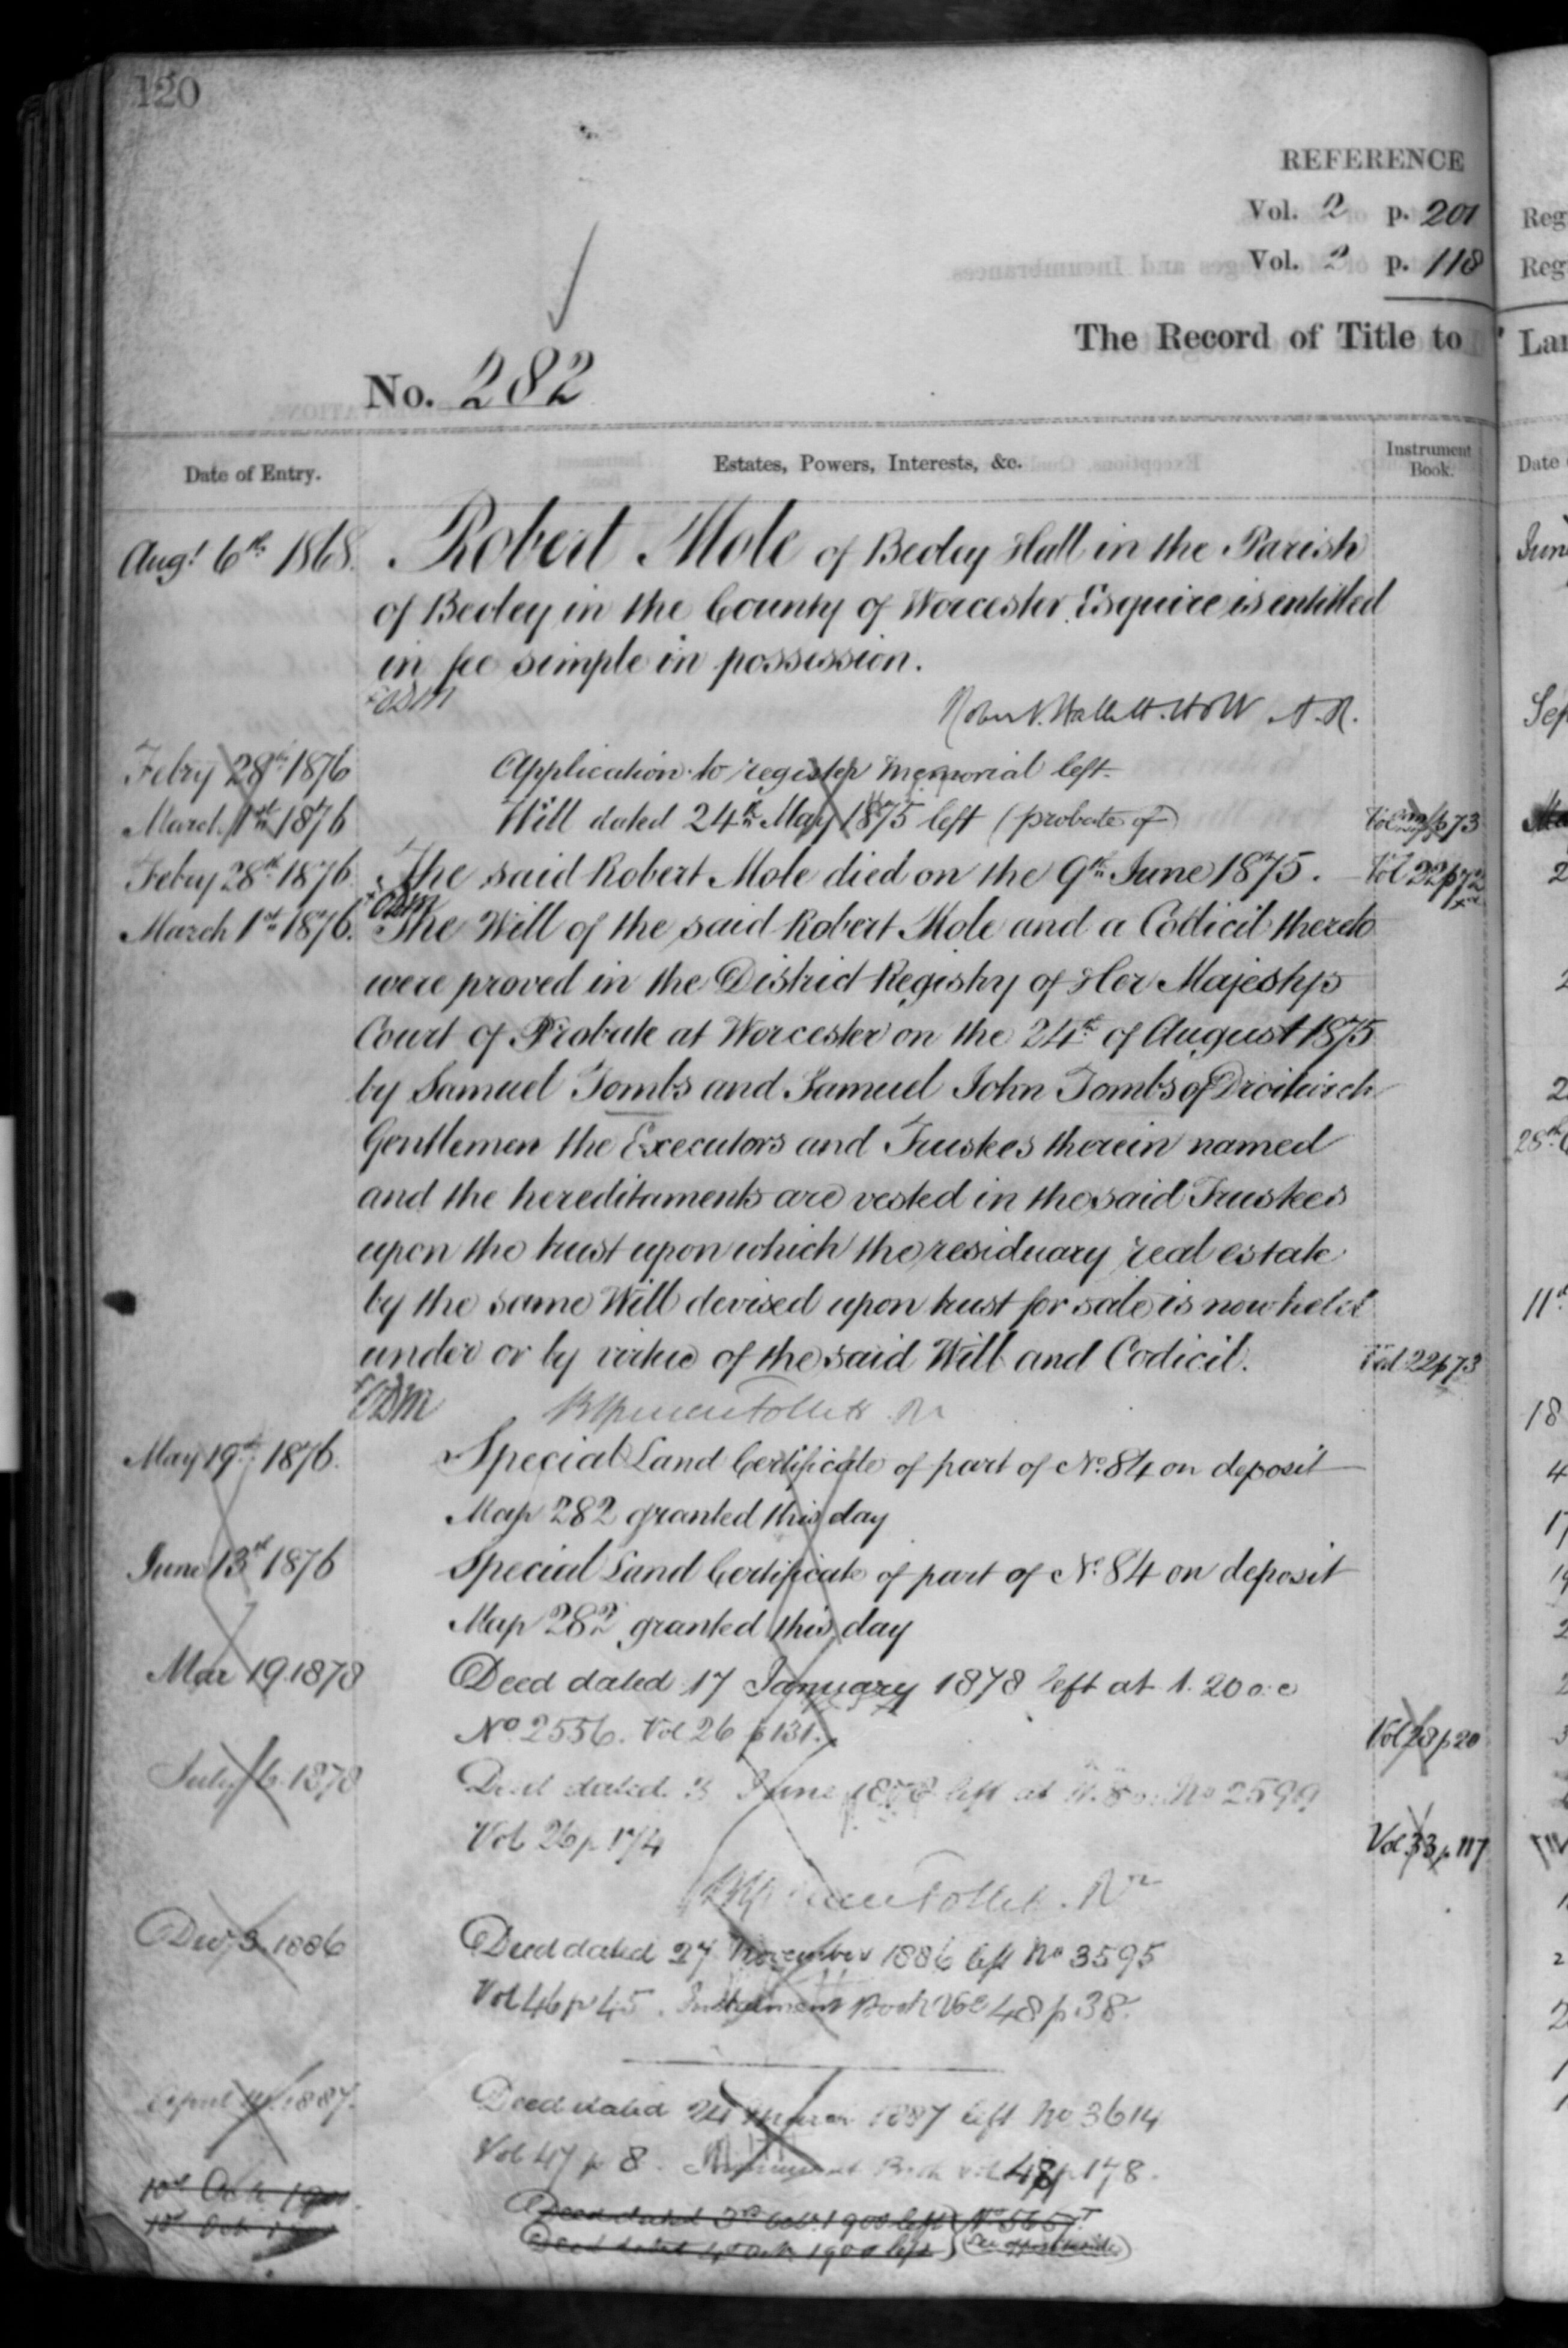 120
REFERENCE
Vol. 2 p. 201
Vol. 2 p. 118
The Record of Title to
No. 282
Date of Entry. Estates, Powers, Interests, &c. Instrument Book.
Augt 6th 1868. Robert Mole of Beoley Hall in the Parish
of Beoley in the County of Worcester Esquire is entitled
in fee simple in possession.
Robert Hallett Holt A.R.
Febry 28th 1876 Application to register memorial left.
March 1st 1876 Will dated 24th May 1875 left (probate of) p 73
Febry 28th 1876 The said Robert Mole died on the 9th June 1875. Vol 22 p 72
March 1st 1876. The Will of the said Robert Mole and a Codicil thereto
were proved in the District Registry of Her Majesty's
Court of Probate at Worcester on the 24th of August 1875
by Samuel Tombs and Samuel John Tombs of Droitwich
Gentlemen the Executors and Trustees therein named
and the hereditaments are vested in the said Trustees
upon the trust upon which the residuary real estate
by the same Will devised upon trust for sale is now held
under or by virtue of the said Will and Codicil. Vol 22 p 73
Follett R
May 19th 1876. Special Land Certificate of part of No. 84 on deposit
Map 282 granted this day
June 13th 1876 Special Land Certificate of part of No. 84 on deposit
Map 282 granted this day
Mar 19. 1878 Deed dated 17 January 1878 left at 1.20 o.c
No 2556. Vol 26 p 131. Vol 28 p 20
July 6. 1878 Deed dated 3 June 1878 left at No 2599
Vol 26 p 174 Vol 33 p 117
Follett. Rr
Dec 3 1886 Deed dated 27 November 1886 left No 3595
Vol 46 p 45. Instrument Book Vol 48 p 38.
April 1887. Deed dated 24 March 1887 left No 3614
Vol 47 p 8. Instrument Book vol 48 p 178.
10th Oct 1900 Deed dated 3rd Oct 1900 left
10th Oct Deed dated 4th Oct 1900 left (See opposite side)